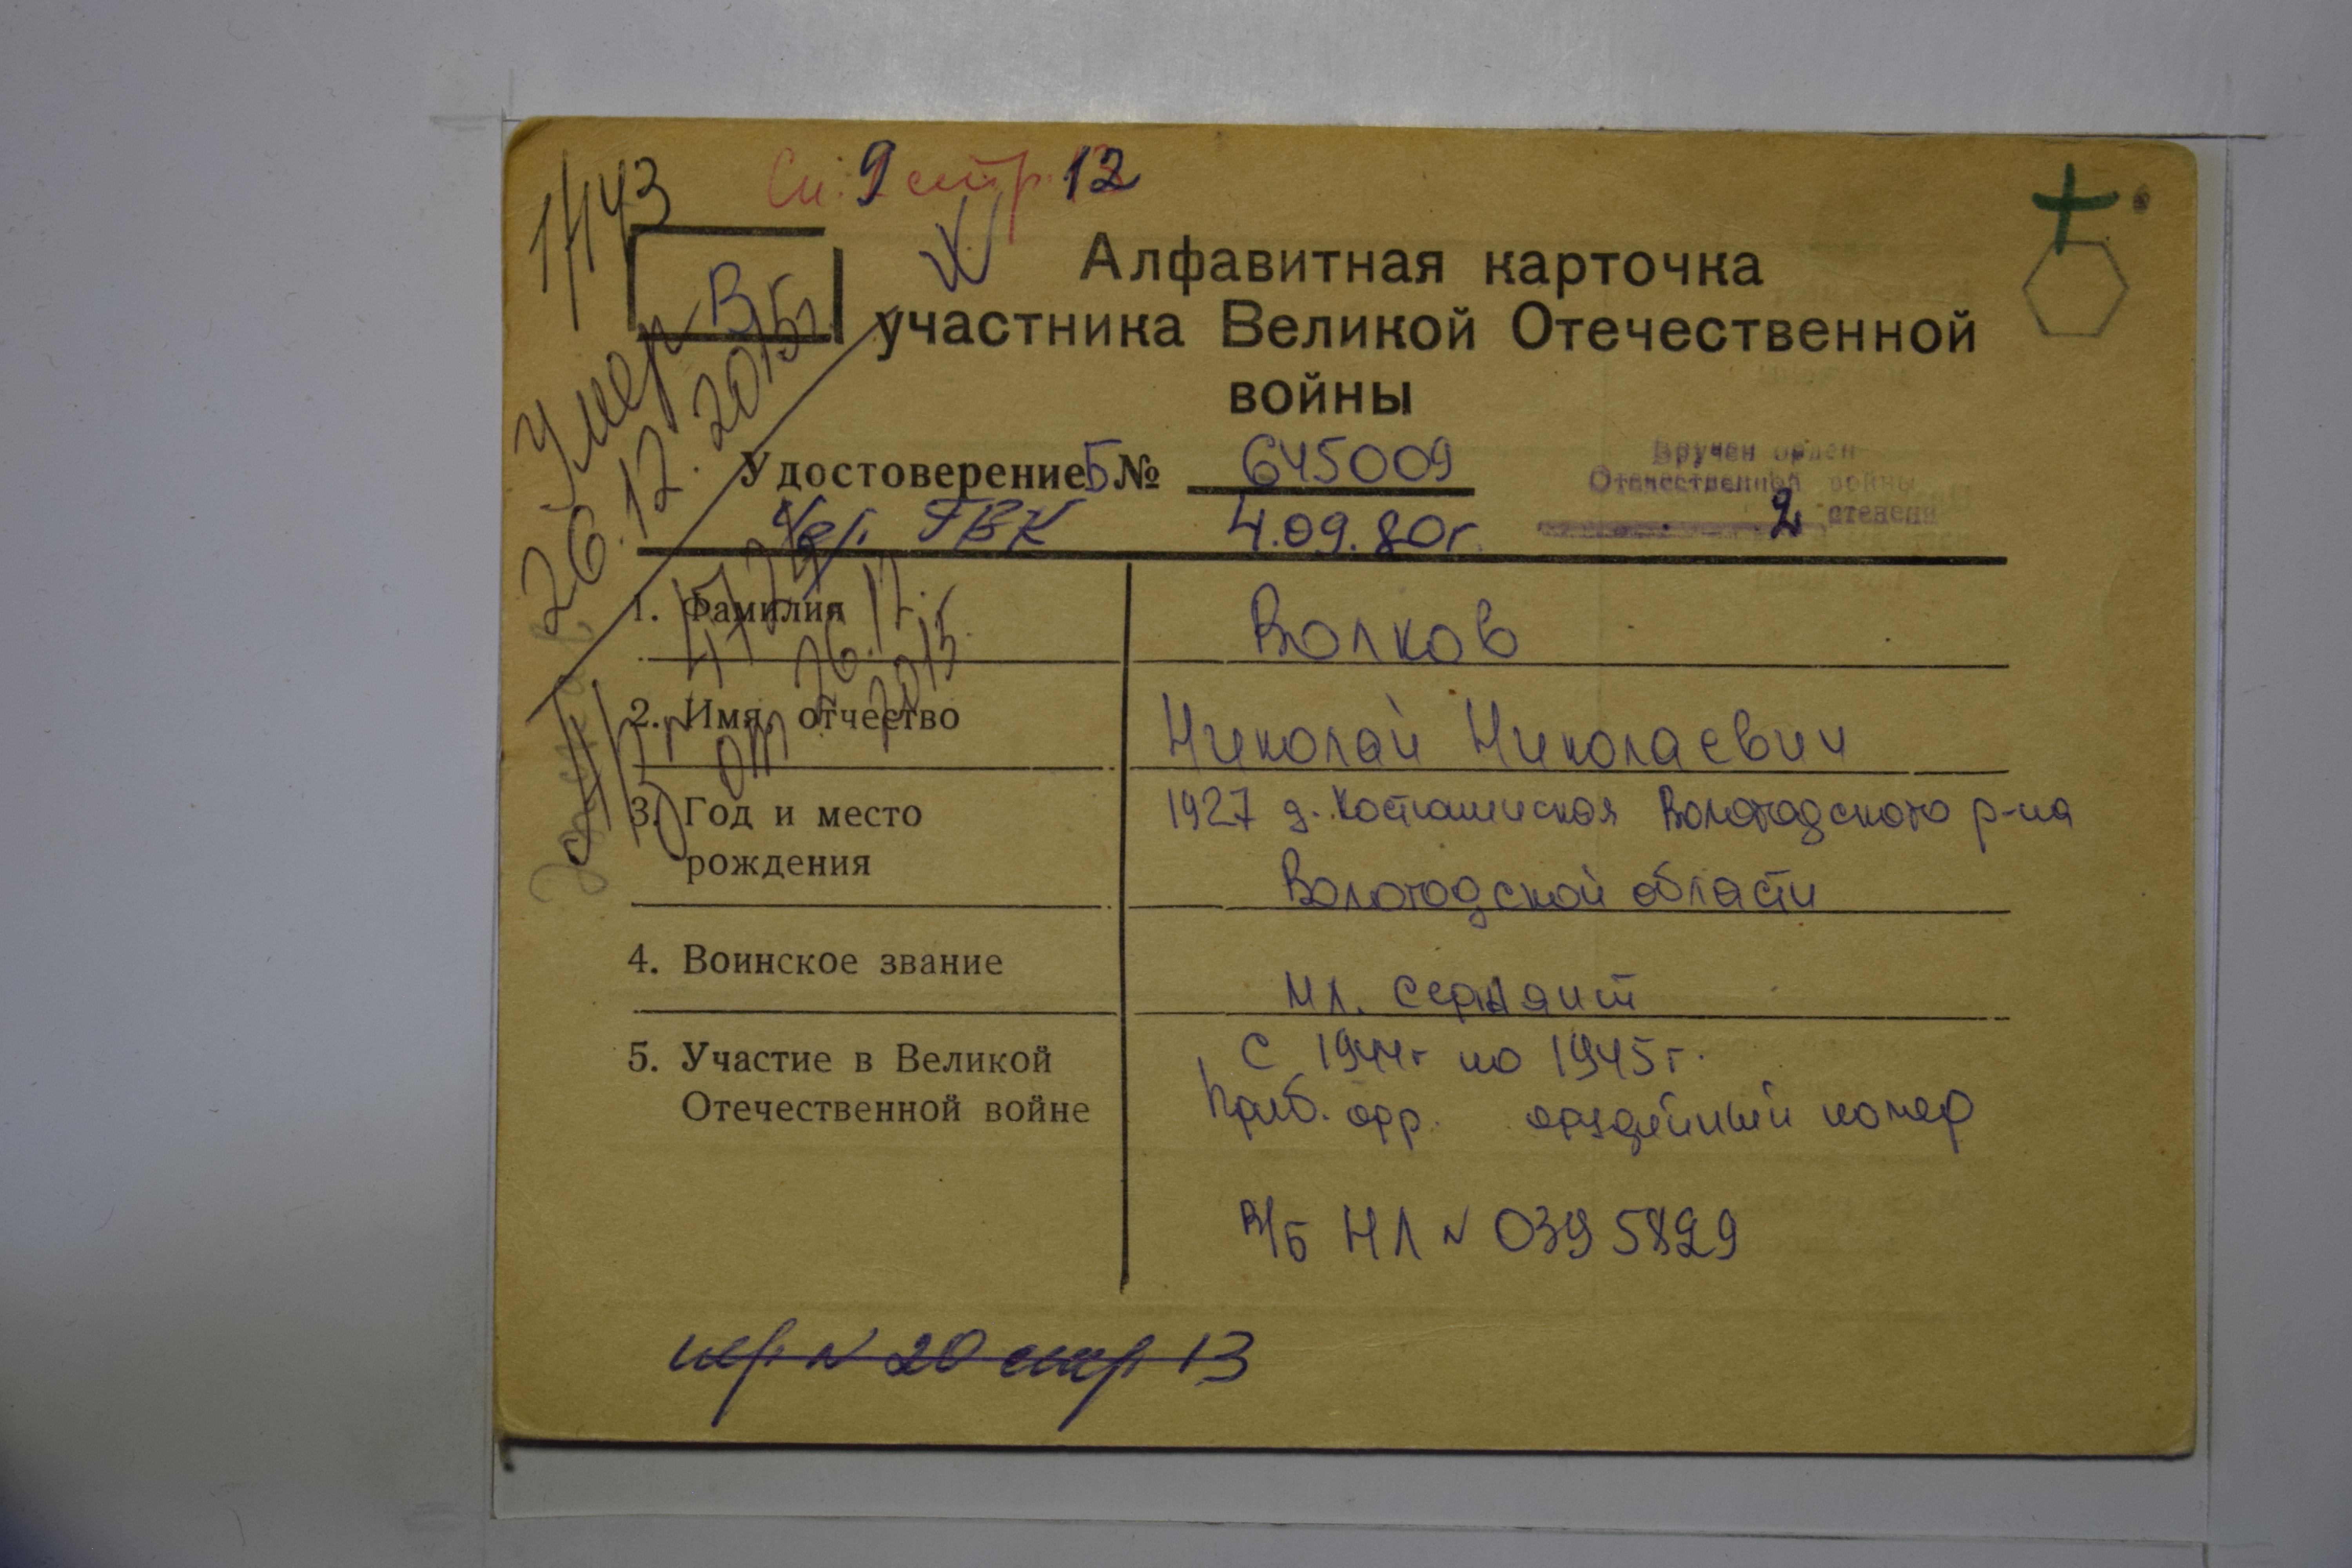 1/143
Сп. 9 стр. 12
В
Алфавитная карточка
участника Великой Отечественной
войны
Умер
26.12.2015г
Удостоверение Б № 645009
Чер. ГВК 4.09.80г.
Вручен орден
Отечественной войны
2 степени
от 26.12.
2015
1. Фамилия Волков
2. Имя, отчество Николай Николаевич
3. Год и место 1927 д. Вологодского р-на
рождения Вологодской области
4. Воинское звание мл. сержант
5. Участие в Великой с 1944г по 1945г.
Отечественной войне Приб. фр. орудейный номер
В/Б НЛ № 0395829
стр 13